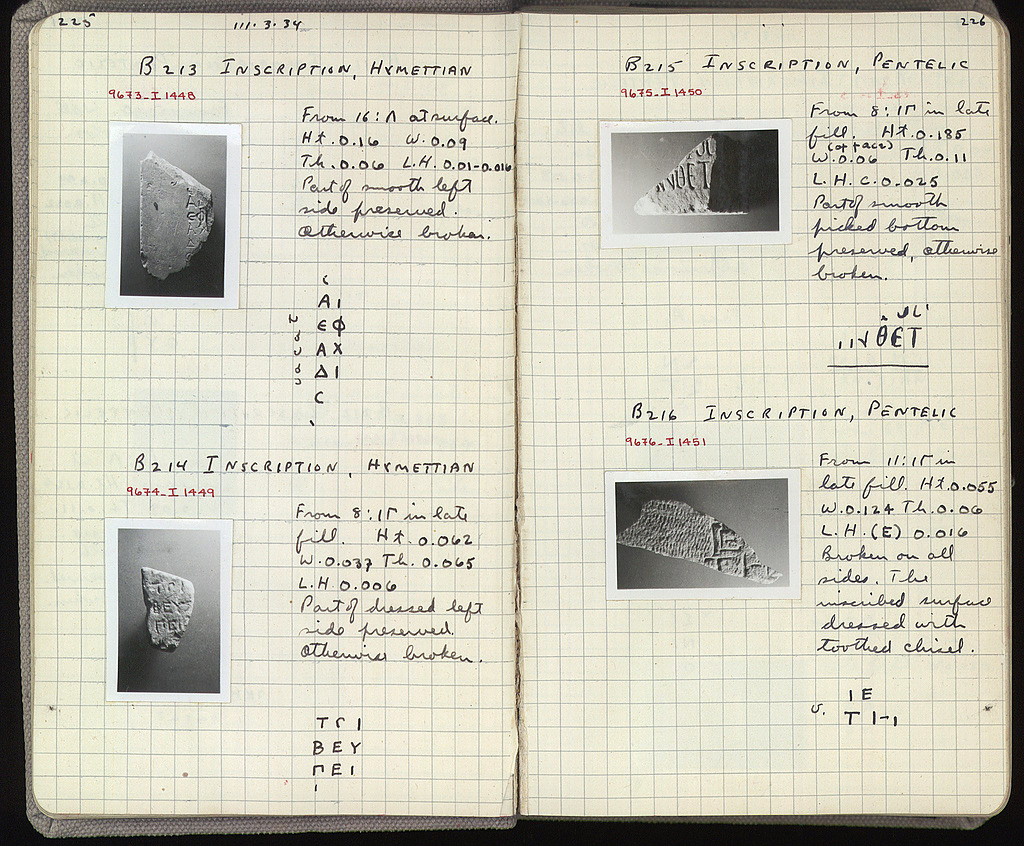 225
111·3·34
B213 INSCRIPTION, HYMETTIAN
9673-I 1448
From 16:Λ at surface.
Ht. 0.16 W. 0.09
Th. 0.06 L.H. 0.01-0.016
Part of smooth left
side preserved.
Otherwise broken.
ΑΙ
ЄΦ
ΑΧ
ΔΙ
C
B214 INSCRIPTION, HYMETTIAN
9674-I 1449
From 8:ΙΓ in late
fill. Ht. 0.062
W. 0.037 Th. 0.065
L.H. 0.006
Part of dressed left
side preserved.
Otherwise broken.
ΤΓΙ
ΒΕΥ
ΠΕΙ
226
B215 INSCRIPTION, PENTELIC
9675-I 1450
From 8:ΙΓ in late
fill. Ht. 0.185
(of face)
W. 0.06 Th. 0.11
L.H. c. 0.025
Part of smooth
picked bottom
preserved, otherwise
broken.
ΘΕΤ
B216 INSCRIPTION, PENTELIC
9676-I 1451
From 11:ΙΓ in
late fill. Ht. 0.055
W. 0.124 Th. 0.06
L.H. (E) 0.016
Broken on all
sides. The
inscribed surface
dressed with
toothed chisel.
Ι Ε
Τ Ι-Ι